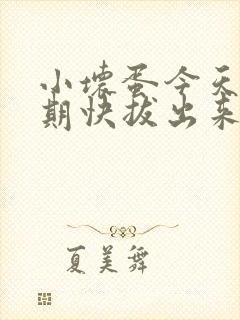 小坏蛋今天
期快拔出来
夏美舞